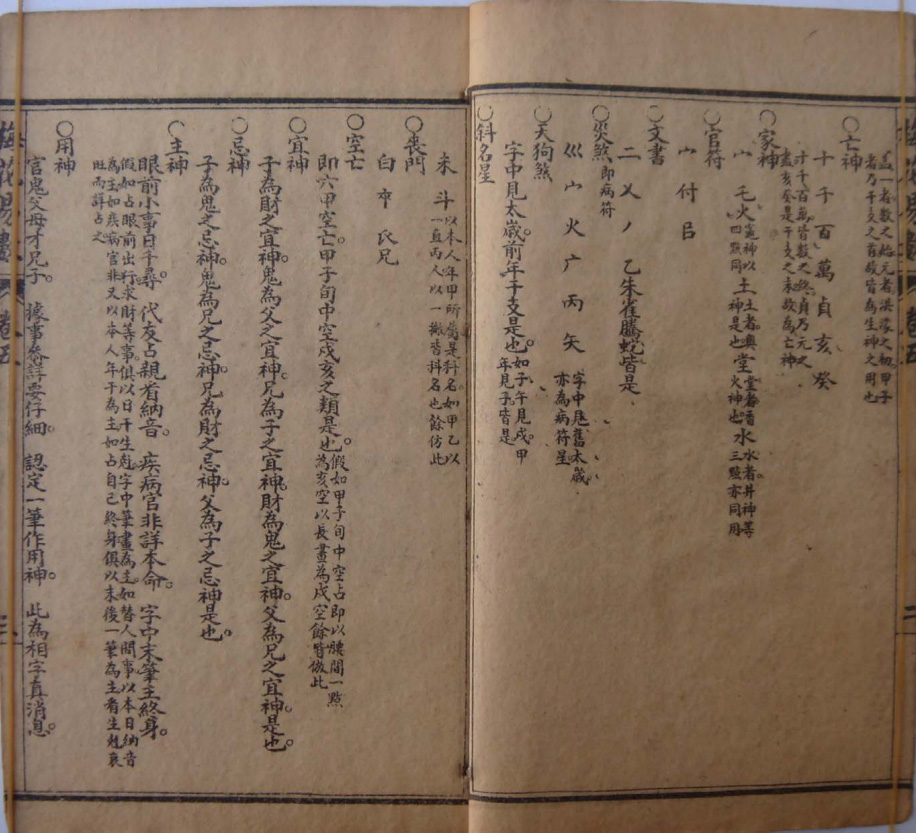 孟一者數之始元者洪濛之初甲子
者乃干支之首故皆為生神之用也
○亡神
十千百萬貞亥癸
十千百萬皆數之終貞乃元之
盡亥癸是干支之末故為亡神
○家神
宀乇火竈神以四點同土土者奧神是也堂堂者香火神也水水者井神等三點亦同用
○官符
宀付㠯
○文書
二乂丿乙朱雀騰蛇皆是
○災煞即病符
巛宀火广丙矢字中見舊太歲亦為病符星
○天狗煞
字中見太歲前年干支是也。如子午見戌。甲年見子。皆是
○斜名星
末斗以本人年甲所屬是斜名。如甲乙以一直丙人以一撇皆斜名也餘仿此
○喪門
白㠳氏兄
○空亡
即六甲空亡。甲子旬中空戌亥之類是也。假如甲子旬中空占即以腰間一點為亥空以長畫為戌空餘皆倣此
○宜神
子為財之宜神。鬼為父之宜神。兄為子之宜神。財為鬼之宜神。父為兄之宜神。是也。
○忌神
子為鬼之忌神。鬼為兄之忌神。兄為財之忌神。父為子之忌神是也。
○主神
眼前小事日干尋。代友占親看納音。疾病官非詳本命。字中末筆主終身。
假如占眼前出行求財等事。俱以日干生尅字中筆畫為主。如替人問事以本日納音
為主如疾病官非又以本人年干為主如占自己終身俱以末後一筆為主看生尅衰
旺而詳占之
○用神
官鬼父母才兄子。據事參詳要仔細。認定一筆作用神。此為相字真消息。